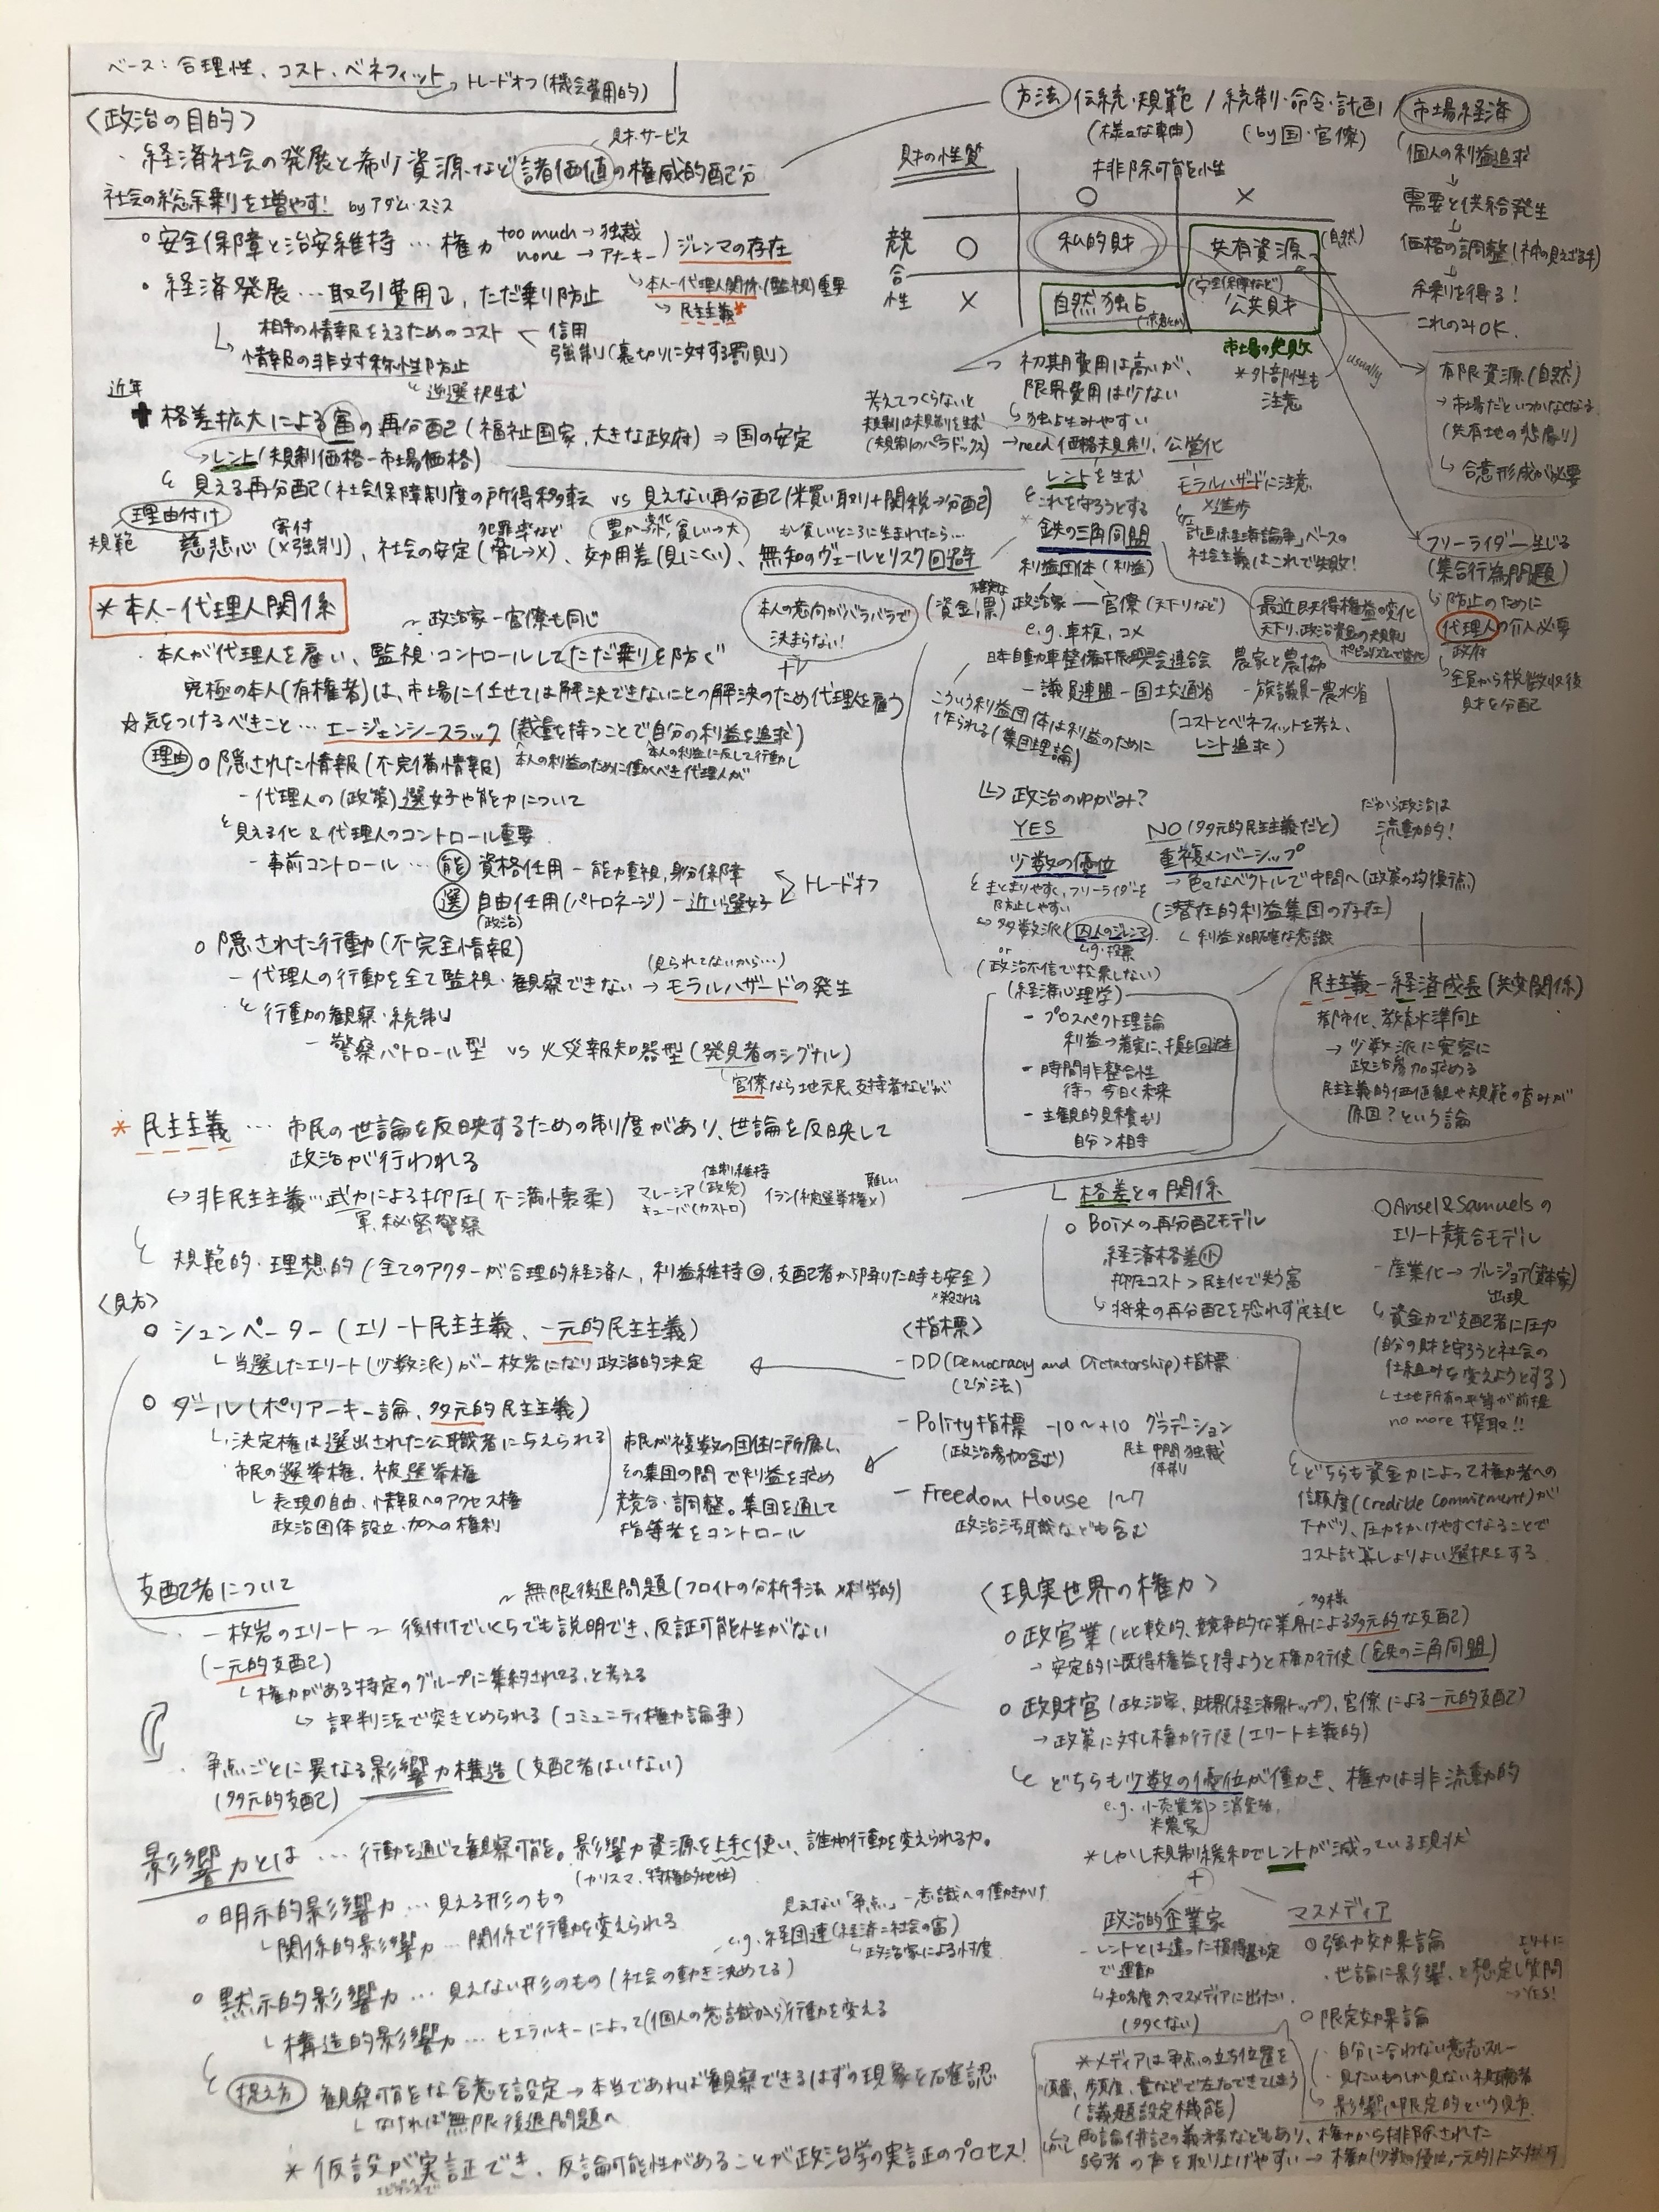 ベース：合理性、コスト、ベネフィット→トレードオフ(機会費用的)
〈政治の目的〉
財・サービス
・経済社会の発展と希少資源など諸価値の権威的配分
社会の総余剰を増やす! by アダム・スミス
○安全保障と治安維持…権力 too much→独裁
none→アナーキー) ジレンマの存在
↳本人-代理人関係(監視)重要
→民主主義*
・経済発展…取引費用↓, ただ乗り防止
相手の情報をえるためのコスト
信用
強制(裏切りに対する罰則)
↳情報の非対称性防止
逆選択生む
近年
格差拡大による富の再分配(福祉国家, 大きな政府)⇒国の安定
→レント(規制価格-市場価格)
見える再分配(社会保障制度の所得移転 vs 見えない再分配(米買い取り+関税→分配)
理由付け
規範 慈悲心(寄付 ×強制)、社会の安定(犯罪率など 脅し→×)、効用差(見にくい)、無知のヴェールとリスク回避
もし貧しいところに生まれたら…
方法 伝統・規範 / 統制・命令・計画 / 市場経済
(様々な事由)
(by 国・官僚)
(個人の利益追求
↓
需要と供給発生
↓
価格の調整(神の見えざる手)
↓
余剰を得る!
これのみOK.
財の性質
排除可能性
○ ×
競合性
○ 私的財 共有資源 (自然)
× 自然独占 (安全保障など) 公共財
市場の失敗
*外部性も
注意
usually
初期費用は高いが、
限界費用は少ない
↳独占生みやすい
→need 価格規制, 公営化
考えてつくらないと
規制は規制を生む
(規制のパラドックス)
レントを生む
これを守ろうとする
モラルハザードに注意
×進歩
「計画経済論争」ベースの
社会主義はこれで失敗!
有限資源(自然)
→市場だといつかなくなる
(共有地の悲劇)
↳合意形成が必要
フリーライダー生じる
(集合行為問題)
↳防止のために
代理人の介入必要
政府
↳全員から税徴収後
財を分配
*鉄の三角同盟
利益団体(利益)
(資金,票) 政治家 — 官僚(天下りなど)
e.g. 車検, コメ
最近既得権益の変化
天下り, 政治資金の規制
ポピュリズムで変化
日本自動車整備振興会連合会
-議員連盟-国土交通省
農家と農協
-族議員-農水省
こういう利益団体は利益のために
作られる(集団理論)
(コストとベネフィットを考え、
レント追求)
*本人-代理人関係
~政治家-官僚も同じ
本人の意向がバラバラで
決まらない!
・本人が代理人を雇い、監視・コントロールしてただ乗りを防ぐ
究極の本人(有権者)は、市場に任せては解決できないことの解決のため代理人を雇う
☆気をつけるべきこと…エージェンシースラック(裁量を持つことで自分の利益を追求)
本人の利益のために働くべき代理人が
本人の利益に反して行動し
理由 ○隠された情報(不完備情報)
-代理人の(政策)選好や能力について
見える化&代理人のコントロール重要
-事前コントロール…能 資格任用-能力重視, 身分保障
選 自由任用(パトロネージ)-近い選好
(政治)
トレードオフ
○隠された行動(不完全情報)
(見られてないから…)
-代理人の行動を全て監視・観察できない→モラルハザードの発生
行動の観察・統制
-警察パトロール型 vs 火災報知器型(発見者のシグナル)
官僚なら地元民, 支持者などが
↳政治のゆがみ?
YES
少数の優位
まとまりやすく, フリーライダーを
防止しやすい
↔多数派(囚人のジレンマ)
e.g. 投票
or
(政治不信で投票しない)
NO(多元的民主主義だと)
重複メンバーシップ
→色々なベクトルで中間へ(政策の均衡点)
(潜在的利益集団の存在)
↳利益×明確な意識
だから政治は
流動的!
(経済心理学)
-プロスペクト理論
利益→着実に、損を回避
-時間非整合性
待つ 今日<未来
-主観的見積もり
自分>相手
民主主義-経済成長(共変関係)
都市化、教育水準向上
→少数派に寛容に
政治参加求める
民主主義的価値観や規範の育みが
原因?という論
*民主主義…市民の世論を反映するための制度があり、世論を反映して
政治が行われる
↔非民主主義…武力による抑圧(不満・懐柔)
軍, 秘密警察
体制維持
マレーシア(政党)
キューバ(カストロ)
難しい
イラン(被選挙権×)
規範的・理想的(全てのアクターが合理的経済人, 利益維持◎, 支配者から降りた時も安全)
×殺される
〈見方〉
○シュンペーター(エリート民主主義、一元的民主主義)
↳当選したエリート(少数派)が一枚岩になり政治的決定
○ダール(ポリアーキー論、多元的民主主義)
↳決定権は選出された公職者に与えられる
市民の選挙権, 被選挙権
↳表現の自由, 情報へのアクセス権
政治団体設立・加入の権利
市民が複数の団体に所属し、
その集団の間で利益を求め
競合・調整。集団を通して
指導者をコントロール
〈指標〉
-DD(Democracy and Dictatorship)指標
(2分法)
-Polity指標 -10~+10 グラデーション
(政治参加含む)
民主 中間 独裁
体制
-Freedom House 1~7
政治汚職なども含む
↳格差との関係
○Boixの再分配モデル
経済格差小
抑圧コスト>民主化で失う富
↳将来の再分配を恐れず民主化
○Ansel&Samuelsの
エリート競合モデル
-産業化→ブルジョア(資本家)
出現
↳資金力で支配者に圧力
(自分の財を守ろうと社会の
仕組みを変えようとする)
↳土地所有の平等が前提
no more 搾取!!
どちらも資金力によって権力者への
信頼度(Credible Commitment)が
下がり、圧力をかけやすくなることで
コスト計算しよりよい選択をする
支配者について
~無限後退問題(フロイトの分析手法 ×科学的)
・一枚岩のエリート~後付けでいくらでも説明でき、反証可能性がない
(一元的支配)
↳権力がある特定のグループに集約される、と考える
↳評判法で突きとめられる(コミュニティ権力論争)
・争点ごとに異なる影響力構造(支配者はいない)
(多元的支配)
〈現実世界の権力〉
多様
○政官業(比較的、競争的な業界による多元的な支配)
→安定的に既得権益を得ようと権力行使(鉄の三角同盟)
○政財官(政治家, 財界(経済界トップ), 官僚による一元的支配)
→政策に対し権力行使(エリート主義的)
どちらも少数の優位が働き、権力は非流動的
e.g. 小売業者>消費者,
米農家
*しかし規制緩和でレントが減っている現状
+
影響力とは…行動を通じて観察可能。影響力資源を上手く使い、誰かの行動を変えられる力。
(カリスマ, 特権的地位)
○明示的影響力…見える形のもの
↳関係的影響力…関係で行動を変えられる
見えない「争点」-意識への働きかけ
e.g. 経団連(経済=社会の富)
↳政治家による忖度
○黙示的影響力…見えない形のもの(社会の動き決めてる)
↳構造的影響力…ヒエラルキーによって(個人の意識から)行動を変える
捉え方 観察可能な含意を設定→本当であれば観察できるはずの現象を確認
↳なければ無限後退問題へ
*仮説が実証でき、反論可能性があることが政治学の実証のプロセス!
エビデンスで
政治的企業家
-レントとは違った損得勘定
で運動
↳知名度↑, マスメディアに出たい.
(多くない)
マスメディア
○強力効果論
・世論に影響、と想定し質問
エリートに
→YES!
○限定効果論
・自分に合わない意志スルー
・見たいものしか見ない視聴者
↳影響は限定的という見方
*メディアは争点の立ち位置を
順番, 頻度, 量などで左右できてしまう
(議題設定機能)
しかし 両論併記の義務などもあり、権力から排除された
弱者の声を取り上げやすい→権力(少数の優位, 一元的)に